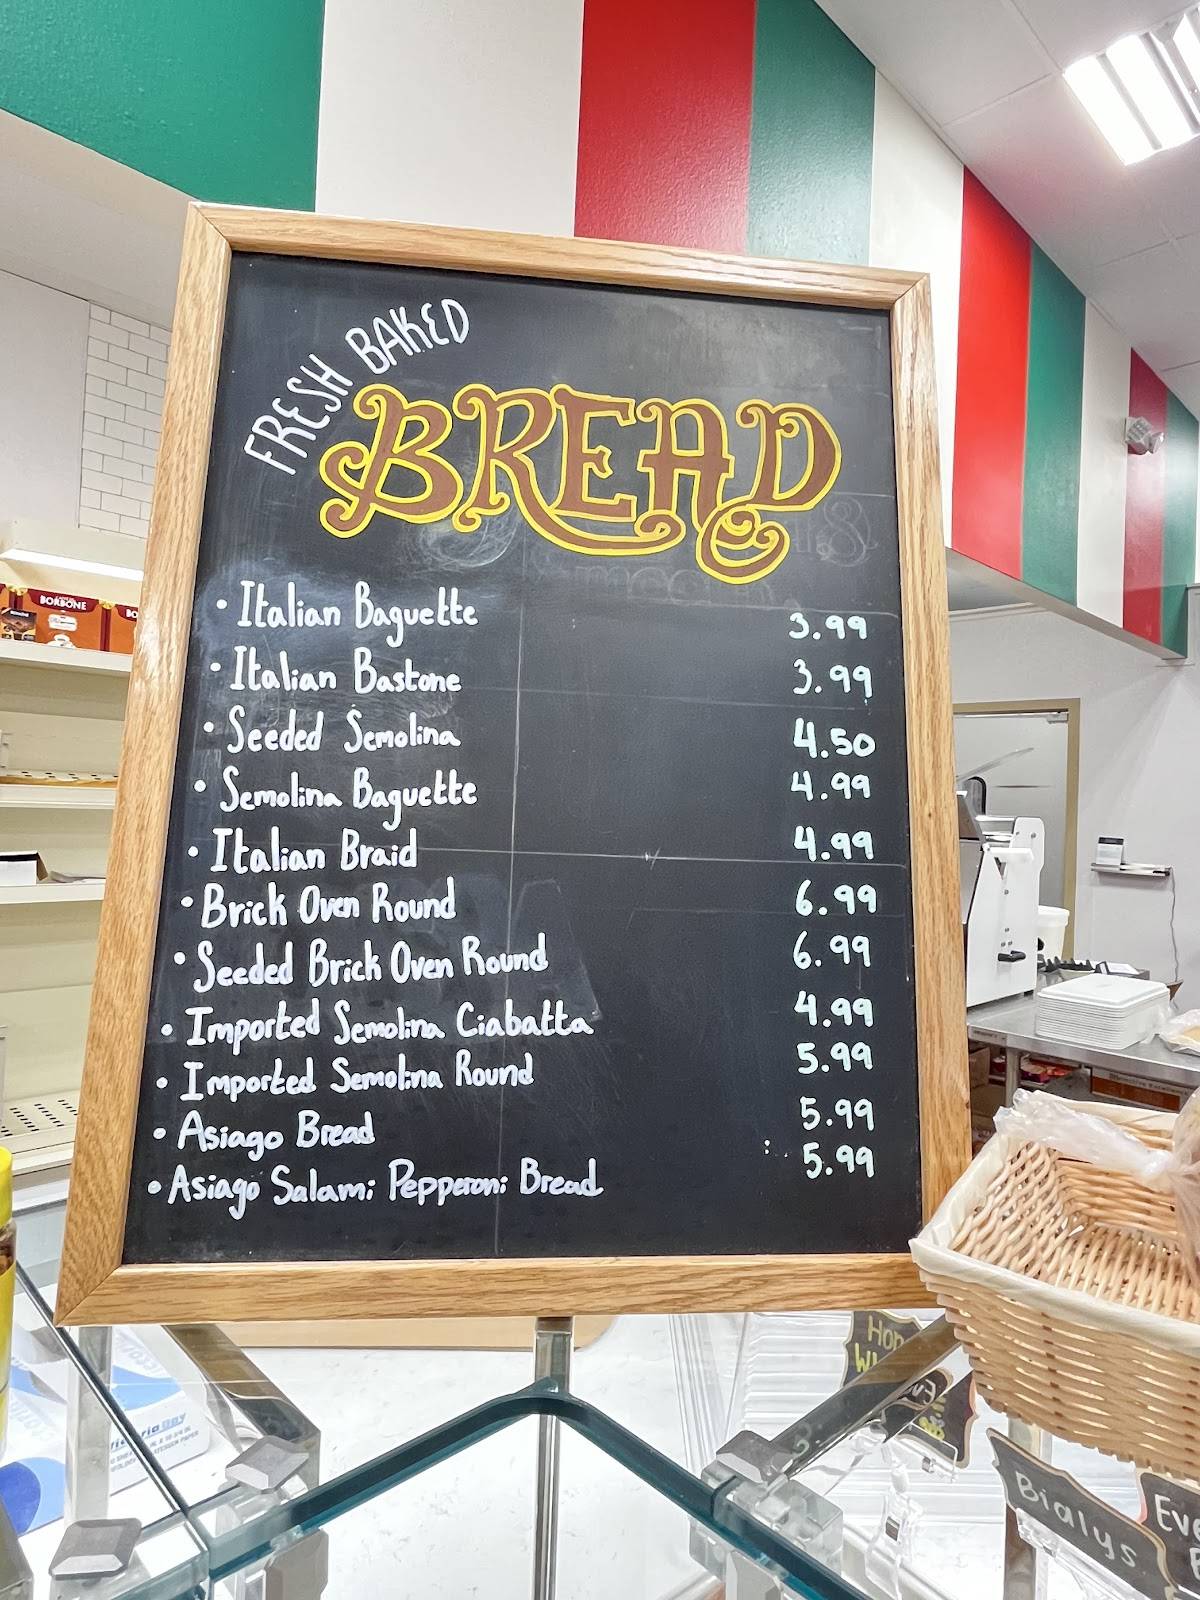 FRESH BAKED
BREAD
• Italian Baguette 3.99
• Italian Bastone 3.99
• Seeded Semolina 4.50
• Semolina Baguette 4.99
• Italian Braid 4.99
• Brick Oven Round 6.99
• Seeded Brick Oven Round 6.99
• Imported Semolina Ciabatta 4.99
• Imported Semolina Round 5.99
• Asiago Bread 5.99
• Asiago Salami Pepperoni Bread 5.99
BORBONE
Bialys